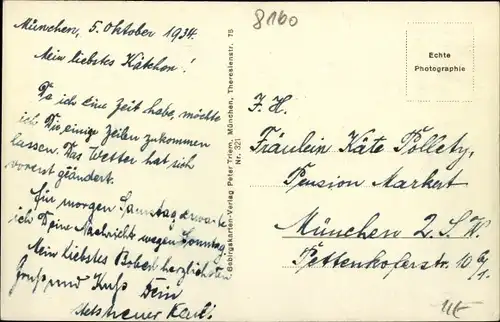 München, 5. Oktober 1934.
Mein liebstes Kätchen!
Da ich eine Zeit habe, möchte
ich Dir einige Zeilen zukommen
lassen. Das Wetter hat sich
vorerst geändert.
Für morgen Samstag erwarte
ich Deine Nachricht wegen Sonntag.
Mein liebstes Boberl herzlichsten
Gruß und Kuß Dein
stets treuer Karl.
Gebirgskarten-Verlag Peter Triem, München, Theresienstr. 75
Nr. 321
8160
Echte
Photographie
F. H.
Fräulein Käte Pollety,
Pension Markert
München 2. S.W.
Pettenkoferstr. 10 6/1.